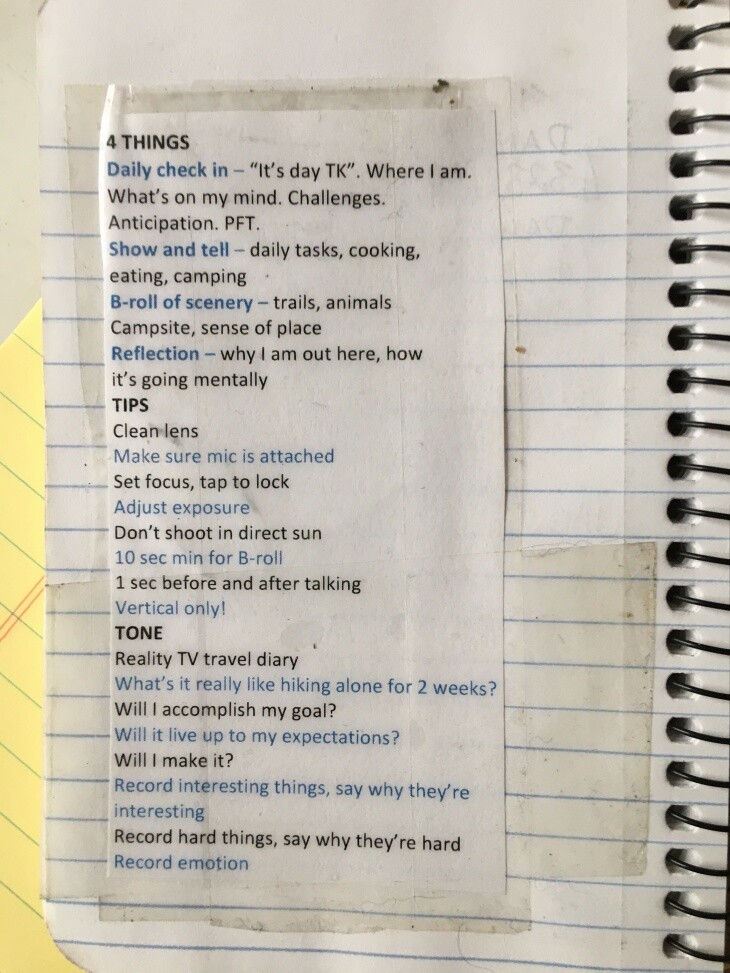 4 THINGS
Daily check in – “It’s day TK”. Where I am.
What’s on my mind. Challenges.
Anticipation. PFT.
Show and tell – daily tasks, cooking,
eating, camping
B-roll of scenery – trails, animals
Campsite, sense of place
Reflection – why I am out here, how
it’s going mentally
TIPS
Clean lens
Make sure mic is attached
Set focus, tap to lock
Adjust exposure
Don’t shoot in direct sun
10 sec min for B-roll
1 sec before and after talking
Vertical only!
TONE
Reality TV travel diary
What’s it really like hiking alone for 2 weeks?
Will I accomplish my goal?
Will it live up to my expectations?
Will I make it?
Record interesting things, say why they’re
interesting
Record hard things, say why they’re hard
Record emotion